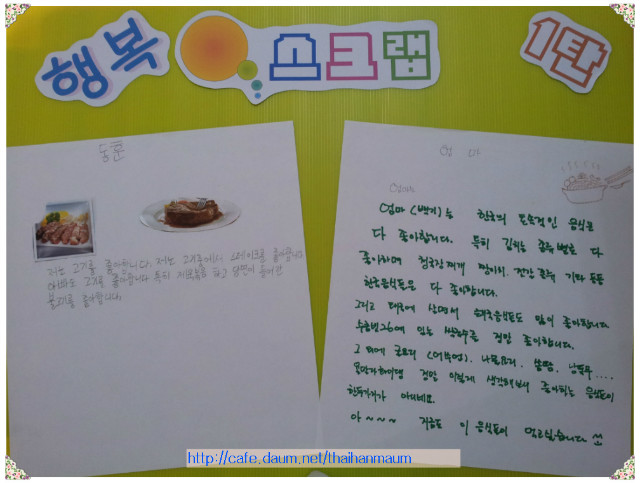 행복 스크랩 1탄
동훈
저는 고기를 좋아합니다. 저는 고기중에서 스테이크를 좋아합니다
아빠도 고기를 좋아합니다 특히 제육볶음 하고 당면이 들어간
불고기를 좋아합니다.
엄마
엄마는
엄마 (백기)는 한국의 토속적인 음식은
다 좋아합니다. 특히 김치는 종류별로 다
좋아하며 청국장찌개 젓갈 종류 기타 등등
한국음식은 다 좋아합니다.
그리고 태국에 살면서 태국음식도 많이 좋아합니다
수쿰빗26에 있는 쌀국수를 정말 좋아합니다.
그 외에 쏨땀
정말 이렇게 생각해보니 좋아하는 음식이
한두가지가 아니네요.
아~~~ 지금도 이 음식들이 먹고싶습니다
http://cafe.daum.net/thaihanmaum